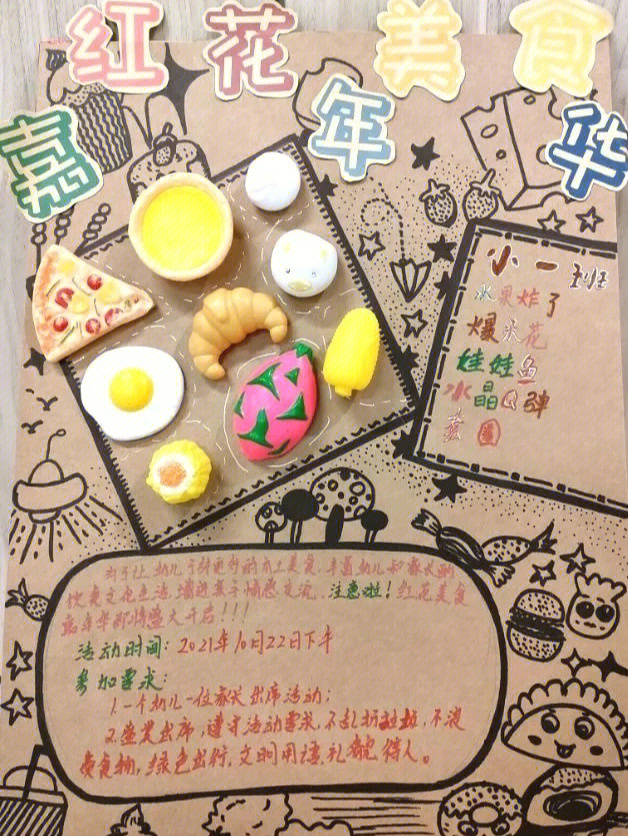 红花美食
嘉年华
小一班
水果炸了
爆米花
娃娃鱼
水晶Q弹
为了让幼儿了解更多的本土美食,丰富幼儿和家长的
饮食文化生活,增进亲子情感交流,注意啦!红花美食
嘉年华即将盛大开启!!!
活动时间:2021年10月22日下午
参加要求:
1.一个幼儿一位家长出席活动;
2.盛装出席,遵守活动要求,不乱扔垃圾,不浪
费食物,绿色出行,文明用语,礼貌待人。